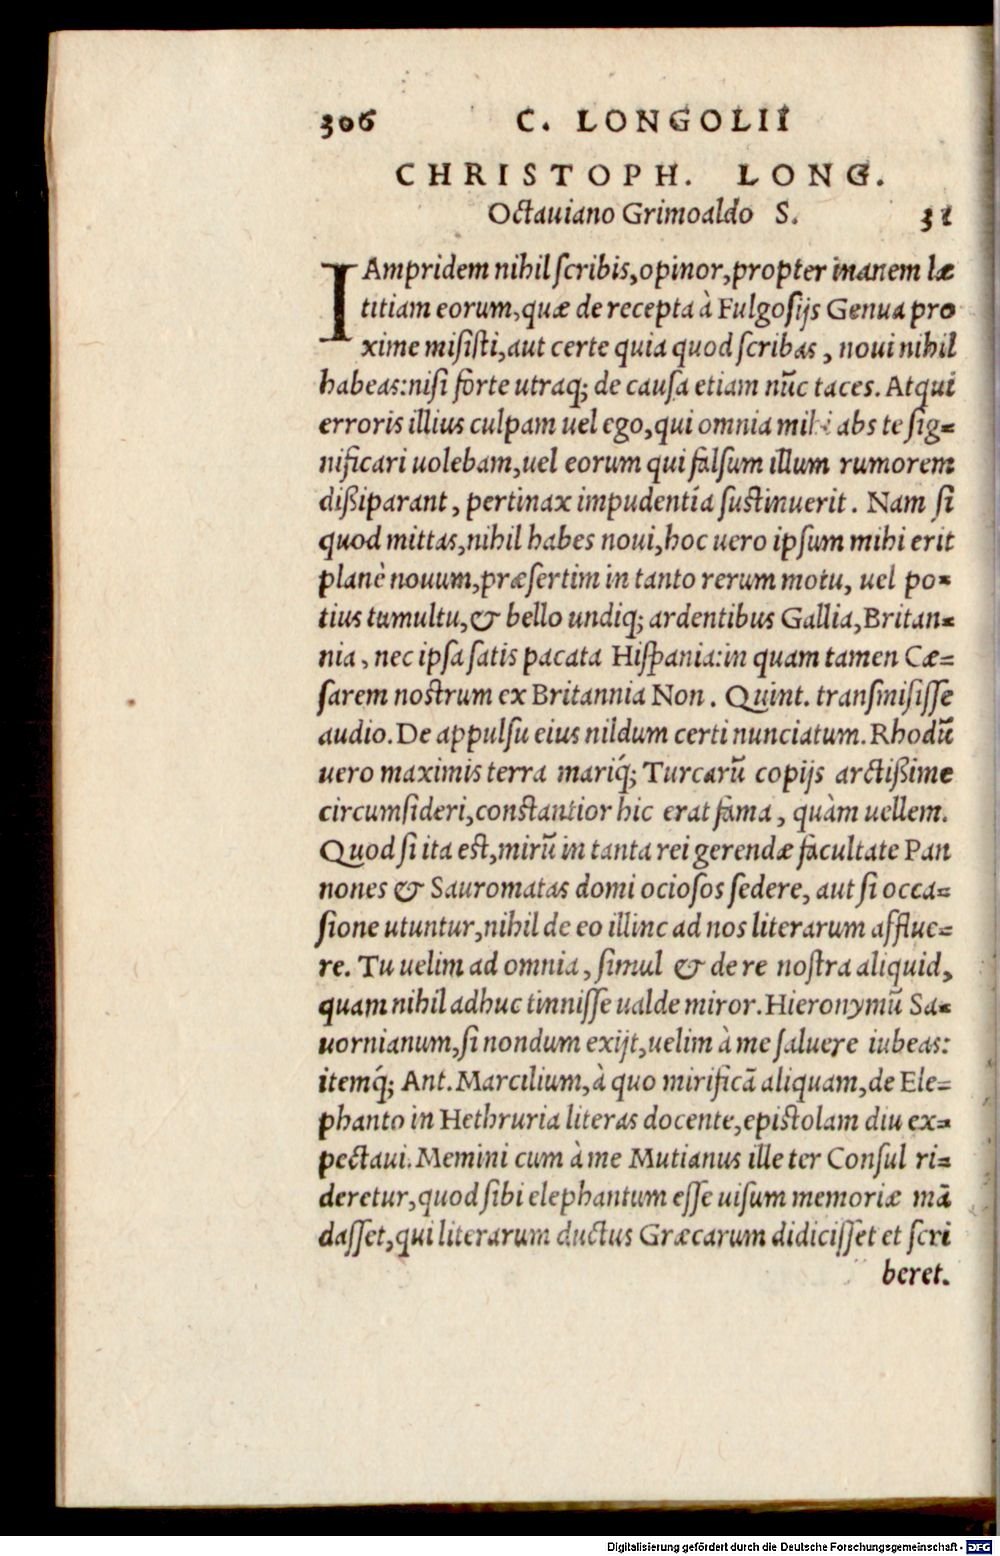 306 C. LONGOLII
CHRISTOPH. LONG.
Octauiano Grimoaldo S. 31
IAmpridem nihil scribis, opinor, propter inanem læ
titiam eorum, quæ de recepta à Fulgosijs Genua pro
xime misisti, aut certe quia quod scribas, noui nihil
habeas: nisi forte utraq; de causa etiam nūc taces. Atqui
erroris illius culpam uel ego, qui omnia mihi abs te sig-
nificari uolebam, uel eorum qui falsum illum rumorem
dißiparant, pertinax impudentía sustinuerit. Nam si
quod mittas, nihil habes noui, hoc uero ipsum mihi erit
planè nouum, præsertim in tanto rerum motu, uel po-
tius tumultu, & bello undiq; ardentibus Gallia, Britan-
nia, nec ipsa satis pacata Hispania: in quam tamen Cæ-
sarem nostrum ex Britannia Non. Quint. transmisisse
audio. De appulsu eius nildum certi nunciatum. Rhodū
uero maximis terra mariq́; Turcarū copijs arctißime
circumsideri, constantior hic erat fama, quàm uellem.
Quod si ita est, mirū in tanta rei gerendæ facultate Pan
nones & Sauromatas domi ociosos sedere, aut si occa-
sione utuntur, nihil de eo illinc ad nos literarum afflue-
re. Tu uelim ad omnia, simul & de re nostra aliquid,
quam nihil adhuc tinnisse ualde miror. Hieronymū Sa-
uornianum, si nondum exijt, uelim à me saluere iubeas:
itemq́; Ant. Marcilium, à quo mirificā aliquam, de Ele-
phanto in Hethruria literas docente, epistolam diu ex-
pectaui. Memini cum à me Mutianus ille ter Consul ri-
deretur, quod sibi elephantum esse uisum memoriæ mā
dasset, qui literarum ductus Græcarum didicisset et scri
beret.
Digitalisierung gefördert durch die Deutsche Forschungsgemeinschaft - DFG